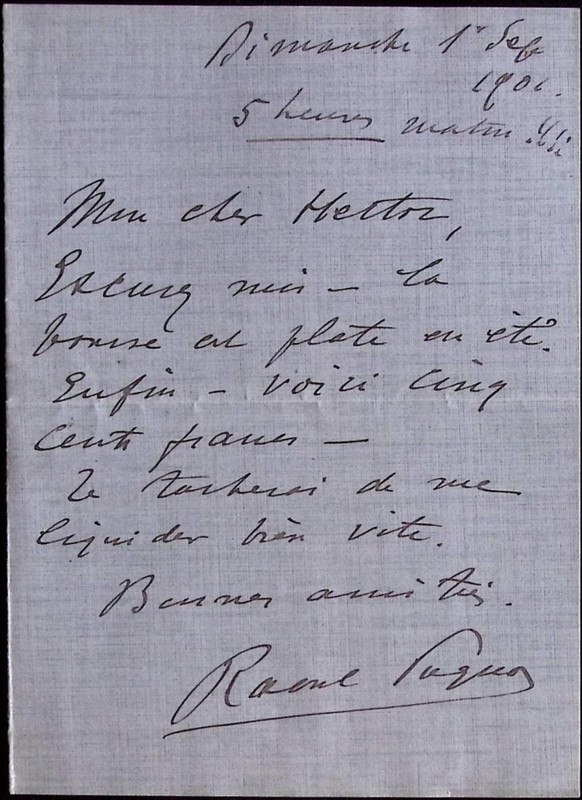 Dimanche 1er Sep
1901.
5 heures matin
Mon cher Hector,
Excusez moi – la
bourse est plate en été.
Enfin – voici Cinq
Cents francs –
Je tacherai de me
liquider bien vite.
Bonnes amitiés.
Raoul Pugno